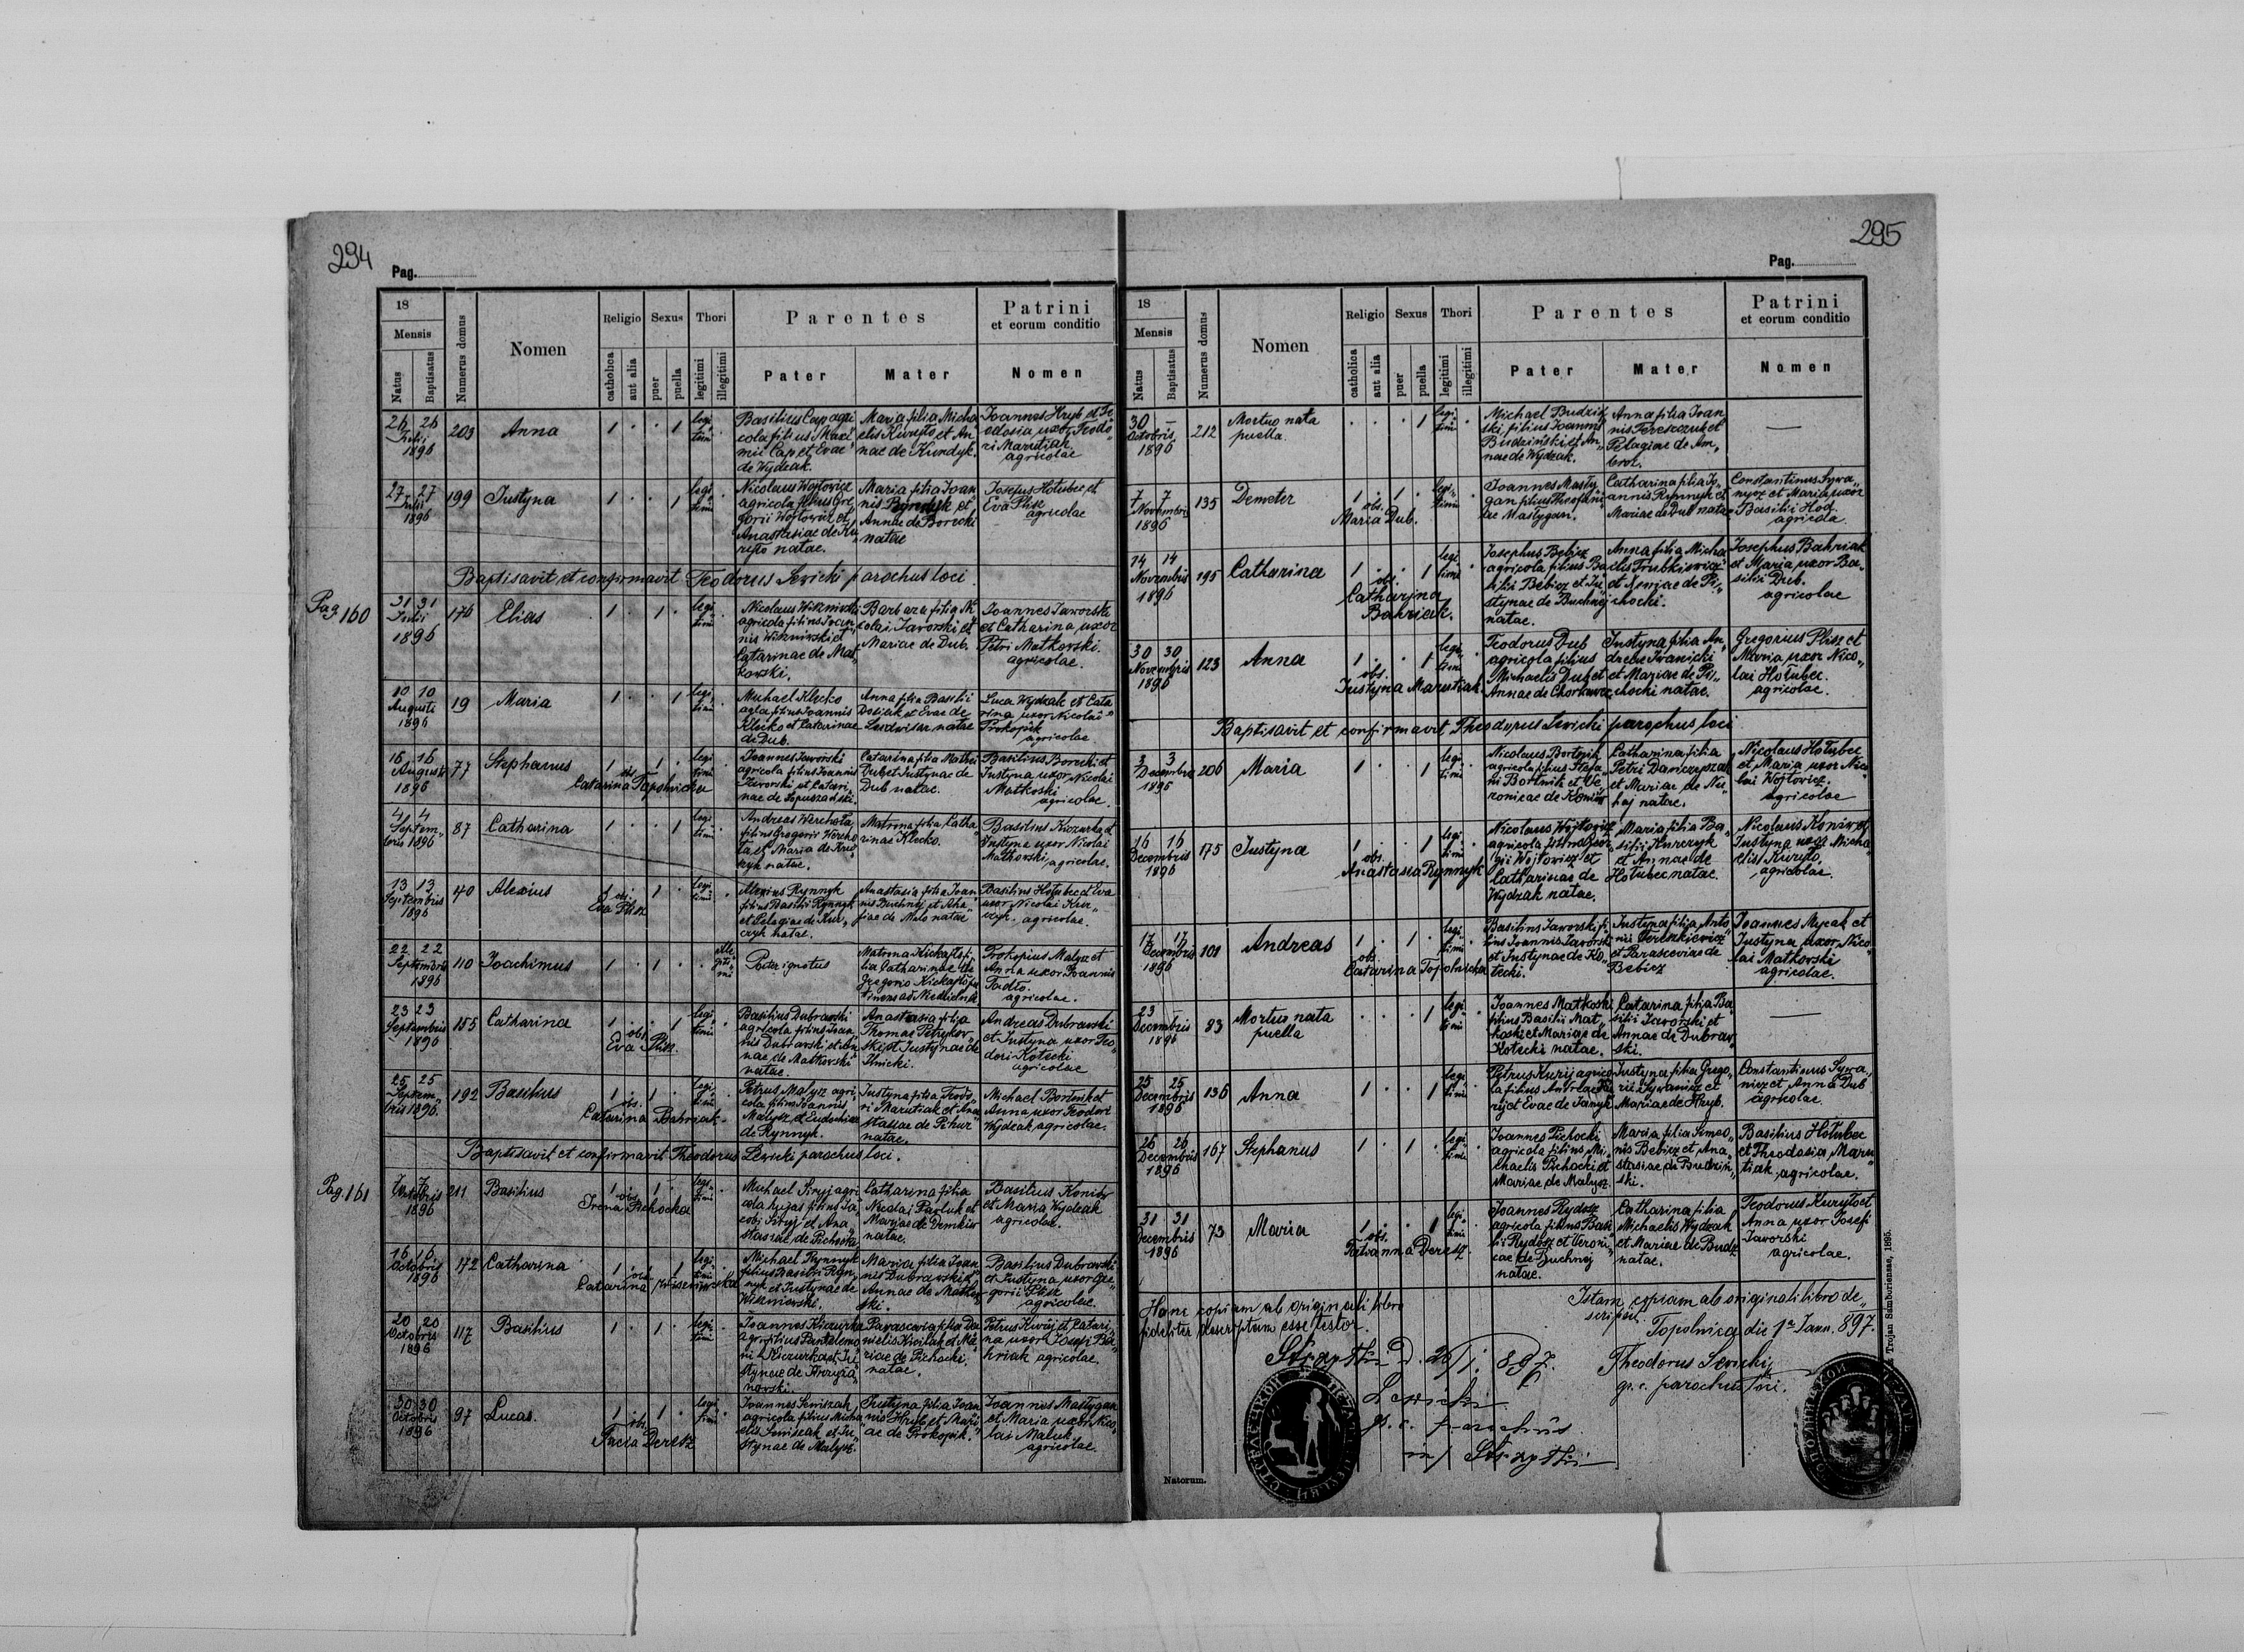 294
Pag.
18
Mensis
Natus
Baptisatus
Numerus domus
Nomen
Religio
catholica
aut alia
Sexus
puer
puella
Thori
legitimi
illegitimi
Parentes
Pater
Mater
Patrini
et eorum conditio
Nomen
26 26
Julii
1896
203
Anna
1 . . 1
legi„
timi
Basilius Cap agri„
cola filius Maxi„
mi Cap et Evae
de Wydzak.
Maria filia Micha„
elis Kuryło et An„
nae de Kundyk.
Joannes Hryb et Te„
odosia uxor Teodo„
ri Marutiak
agricolae
27 27
Julii
1896
199
Justyna
1 . . 1
legi„
timi
Nicolaus Wojtowicz
agricola filius Gre„
gorii Wojtowicz et
Anastasiae de Ku„
ryło natae.
Maria filia Joan„
nis et
Annae de Borecki
natae
Josefus Hołubec et
Eva Plisz
agricolae
Baptisavit et confirmavit Teodorus Lewicki parochus loci
Pag 160
31 31
Julii
1896
176
Elias
1 . 1 .
legi„
timi
Nicolaus Wiszniwski
agricola filius Joan„
nis Wiszniwski et
Catarinae de Mat„
kowski.
Barbara filia Ni„
colai Jaworski et
Mariae de Dub.
Joannes Jaworski
et Catharina uxor
Petri Matkowski
agricolae.
10 10
Augusti
1896
19
Maria
1 . . 1
legi„
timi
Michael Klecko
agla filius Joannis
Klecko et Catarinae
de Dub.
Anna filia Basilii
Dosiak et Evae de
natae
Luca Wydzak et Cata„
rina uxor Nicolai
Prokopik
agricolae.
16 16
Augusti
1896
77
Stephanus
1 . 1 .
obs.
Catarina Topolnicka
legi„
timi
Joannes Jaworski
agricola filius Joannis
Jaworski et Catari„
nae de Łopuszański.
Catarina filia Mathei
Dub et Justynae de
Dub natae.
Basilius Borecki et
Justyna uxor Nicolai
Matkoski
agricolae.
4 4
Septem„
bris 1896
87
Catharina
1 . . 1
legi„
timi
Andreas Werchoła
filius Gregorii Wercho„
ła et Maria de
natae.
Matrona filia Catha„
rinae Klecko.
Basilius Kiczurka et
Justyna uxor Nicolai
Matkowski, agricolae.
13 13
Septembris
1896
40
Alexius
1 obs. 1 .
Eva Plisz
legi„
timi
Alexius Rynnyk
filius Basilii Rynnyk
et Pelagiae de Kur„
czyk natae.
Anastasia filia Joan„
nis Buchnij et Aha„
fiae de Mało natae
Basilius Hołubec et Eva
uxor Nicolai Kur„
czyk. agricolae.
22 22
Septembris
1896
110
Joachimus
1 . 1 .
ille„
giti„
mi
Pater ignotus
Matrona Kickajło fi„
lia Catharinae de
Gregorio Kickajło
Prokopius Małysz et
Anna uxor Joannis
Fadło.
agricolae.
23 23
Septembris
1896
155
Catharina
1 . . 1
obs.
Eva Plisz.
legi„
timi
Basilius Dubrawski
agricola filius Joan„
nis Dubrawski et An„
nae de Matkowski
natae.
Anastasia filia
Thomas Petrykow„
ski et Justynae de
Ilnicki.
Andreas Dubrawski
et Justyna uxor Teo„
dori Kotecki
agricolae
25 25
Septem„
bris 1896.
192
Basilius
1 . 1 .
obs.
Catarina Bahriak.
legi„
timi
Petrus Małysz agri„
cola filius Joannis
Małysz et Eudochiae
de Rynnyk.
Justyna filia Teodo„
ri Marutiak et Ana„
stasiae de Pchur
natae.
Michael Bortnik et
Anna uxor Teodori
Wydzak agricolae.
Baptisavit et confirmavit Theodorus Lewicki parochus loci.
Pag. 161
7 7
Octobris
1896
211
Basilius
1 . 1 .
obs.
Irena Pichocka
legi„
timi
Michael Siryj agri„
cola hujus filius Ja„
cobi Siryj et Ana„
stasiae de Pichocka
Catharina filia
Nicolai Pawluk et
Mariae de Demkiw
natae.
Basilius Koniw
et Maria Wydzak
agricolae.
16 16
Octobris
1896
172
Catharina
1 . . 1
obs.
Catarina Wiszniwska
legi„
timi
Michael Rynnyk
filius Basilii Ryn„
nyk et Justynae de
Wiszniewski.
Maria filia Joan„
nis Dubrawski et
Annae de Matkow„
ski.
Basilius Dubrawski
et Justyna uxor Gre„
gorii Plisz
agricolae.
20 20
Octobris
1896
117
Basilius
1 . 1 .
legi„
timi
Joannes Kiczurka
agr. filius Pantalemo„
ni Kiczurka et Ju„
stynae de Strzyża„
nowski.
Parascevia filia Da„
nielis Kwilak et Ma„
riae de Pichocki.
natae.
Petrus Kuryj et Catari„
na uxor Josephi Ba„
hriak agricolae.
30 30
Octobris
1896
97
Lucas.
1 . 1 .
obs.
Lucia Deresz
legi„
timi
Joannes Seniszak
agricola filius Micha„
elis Seniszak et Ju„
stynae de Małysz.
Justyna filia Joan„
nis Hryb et Mari„
ae de Prokopik.
Joannes Mastygan
et Maria uxor Nico„
lai Maluk.
agricolae.
295
Pag.
18
Mensis
Natus
Baptisatus
Numerus domus
Nomen
Religio
catholica
aut alia
Sexus
puer
puella
Thori
legitimi
illegitimi
Parentes
Pater
Mater
Patrini
et eorum conditio
Nomen
30 —
Octobris
1896
212
Mortuo nata
puella.
. . . 1
legi„
timi
Michael Budziń„
ski, filius Joannis
Budziński et An„
nae de Wydzak.
Anna filia Joan„
nis Tereszczuk et
Pelagiae de Am„
broz.
—
7 7
Novembris
1896
135
Demeter
1 . 1 .
obs.
Maria Dub.
legi„
timi
Joannes Masty„
gan filius Theofani„
ae Mastygan.
Catharina filia Jo„
annis Rynnyk et
Mariae de Dub natae
Constantinus Sywa„
nycz et Maria uxor
Basilii Hod.
agricola.
14 14
Novembris
1896
195
Catharina
1 . . 1
obs.
Catharina
Bahriak.
legi„
timi
Josephus Bebicz
agricola filius Ba„
silii Bebicz et Ju„
stynae de Buchnij
natae.
Anna filia Micha„
elis Trubkiewicz
et Xeniae de Pi„
chocki.
Josephus Bahriak
et Maria uxor Ba„
silii Dub.
agricolae
30 30
Novembris
1896
123
Anna
1 . . 1
obs.
Justyna Marutiak
legi„
timi
Teodorus Dub
agricola filius
Michaelis Dub et
Annae de
Justyna filia An„
dreae Iwanicki
et Mariae de Pi„
chocki natae.
Gregorius Plisz et
Maria uxor Nico„
lai Hołubec.
agricolae.
Baptisavit et confirmavit Theodorus Lewicki parochus loci
3 3
Decembris
1896
206
Maria
1 . . 1
legi„
timi
Nicolaus Bortnik
agricola filius Stefa„
ni Bortnik et Ve„
ronicae de Koniw
Catharina filia
Petri Daniczyszak
et Mariae de Nu„
haj natae.
Nicolaus Hołubec
et Maria uxor Nico„
lai Wojtowicz.
agricolae
16 16
Decembris
1896
175
Justyna
1 . . 1
obs.
Anastasia Rynnyk
legi„
timi
Nicolaus Wojtowicz
agricola filius Gre„
gorii Wojtowicz et
Catharinae de
Wydzak natae.
Maria filia Ba„
silii Kurczyk
et Annae de
Hołubec natae.
Nicolaus Koniw et
Justyna uxor Micha„
elis Kuryło,
agricolae.
17 17
Decembris
1896
101
Andreas
1 . 1 .
obs.
Catarina Topolnicka
legi„
timi
Basilius Jaworski fi„
lius Joannis Jaworski
et Justynae de Ko„
tecki.
Justyna filia Anto„
nii Tereszkiewicz
et Parasceviae de
Bebicz
Joannes Mycak et
Justyna uxor Nico„
lai Matkowski
agricolae.
23
Decembris
1896
83
Mortuo nata
puella
. . . 1
legi„
timi
Joannes Matkoski
filius Basilii Mat„
koski et Mariae de
Kotecki natae.
Catarina filia Ba„
silii Jaworski et
Annae de Dubraw„
ski.
—
25 25
Decembris
1896
136
Anna
1 . . 1
legi„
timi
Petrus Kuryj agrico„
la filius Andreae Ku„
ryj et Evae de Janyk
Justyna filia Grego„
rii Sywanicz et
Mariae de Hryb.
Constantinus Sywa„
nicz et Anna Dub
agricolae.
26 26
Decembris
1896
167
Stephanus
1 . 1 .
legi„
timi
Joannes Pichocki
agricola filius Mi„
chaelis Pichocki et
Mariae de Małysz.
Maria filia Simeo„
nis Bebicz et Ana„
stasiae de Budziń„
ski.
Basilius Hołubec
et Theodosia Maru„
tiak, agricolae.
31 31
Decembris
1896
73
Maria
1 . . 1
obs.
Tatianna Deresz.
legi„
timi
Joannes Rydosz
agricola filius Basi„
lii Rydosz et Veroni„
cae de Buchnij
natae.
Catharina filia
Michaelis Wydzak
et Mariae de Budz
natae.
Teodorus Kuryło et
Anna uxor Josefi
Jaworski
agricolae.
Hanc copiam ab originali libro
fideliter descriptam esse testor.
Strzyłki D. 26/I. 897.
Lewicki
gr. c. parochus
in Strzyłki
Istam copiam ab originali libro de„
scripsi.
Topolnica die 1a Jann. 897.
Theodorus Lewicki
gr. c. parochus loci.
Natorum.
Trojan Samboriensae, 1895.